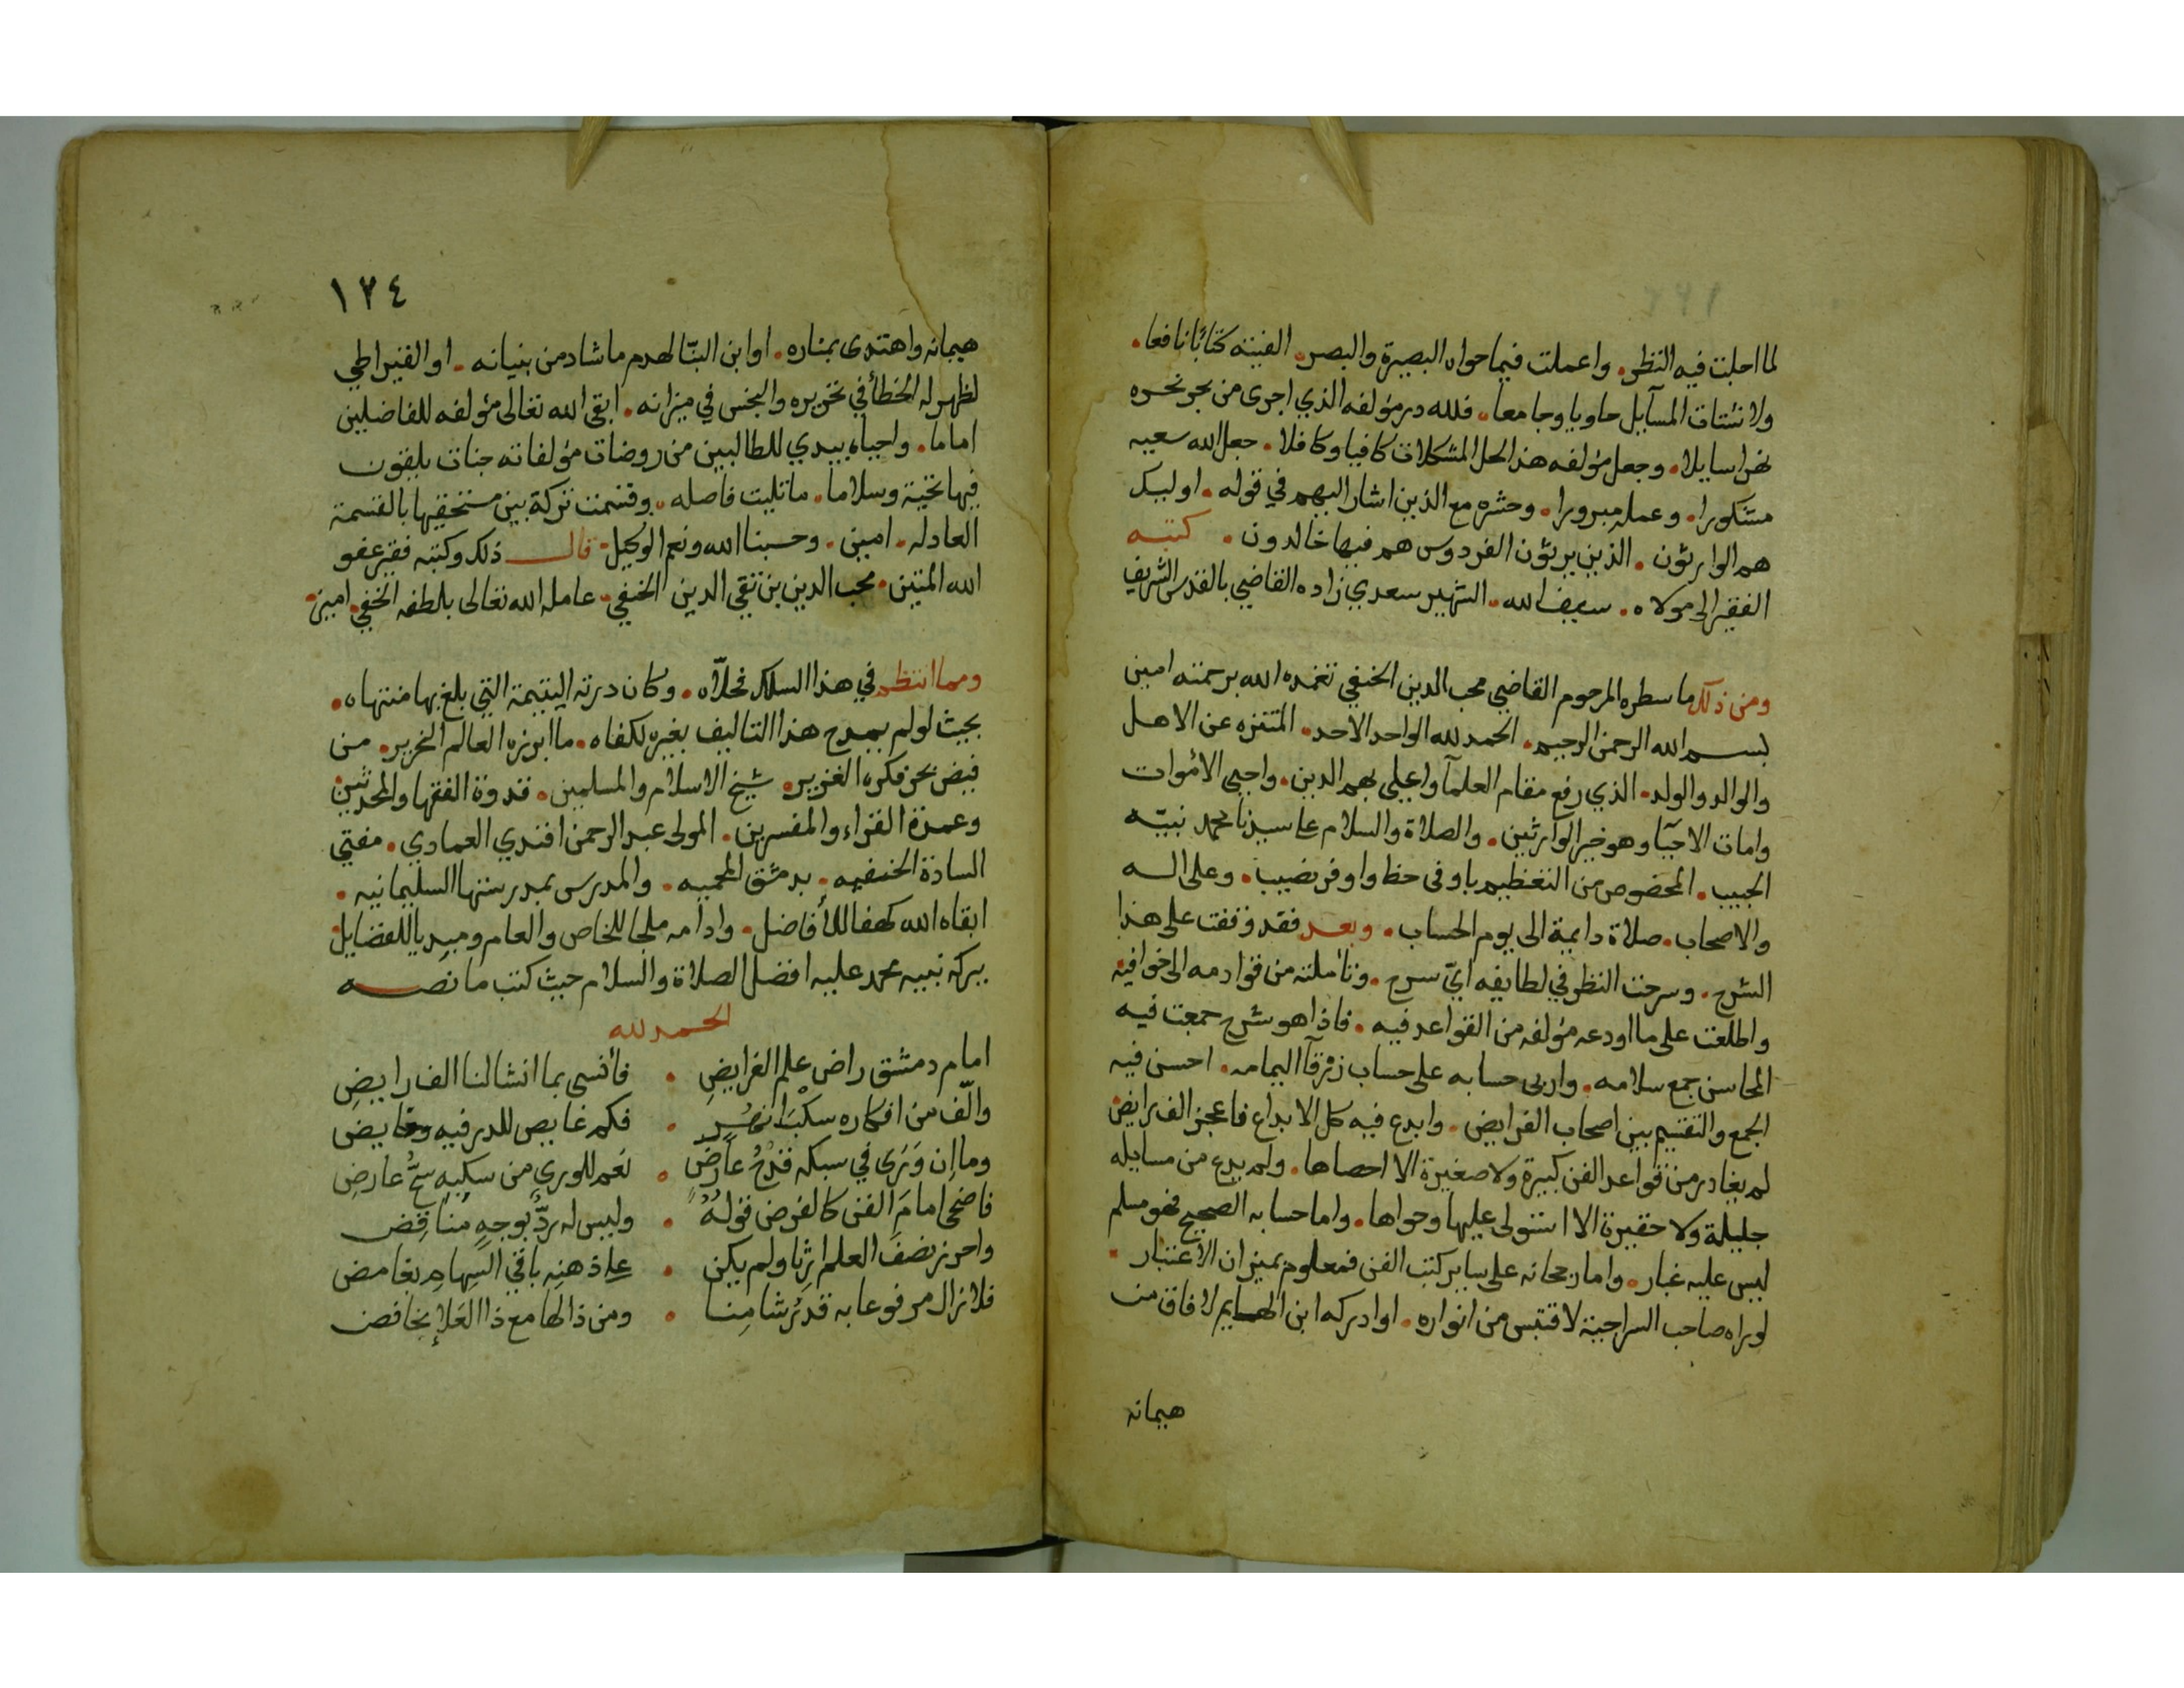 لما احلت فيه النظر. واعملت فيما حواه البصيرة والبصر. الفيته كتابا نافعا.
ولاشتات المسآيل حاويا وجامعا. فلله در مؤلفه الذي اجرى من بحر نحره
نهرا سايلا. وجعل مؤلفه هذا لحل المشكلات كافيا وكافلا. جعل الله سعيه
مشكورا. وعمله مبرورا. وحشره مع الذين اشار اليهم في قوله. اوليك
هم الوارثون. الذين يرثون الفردوس هم فيها خالدون. كتبه
الفقير الى مولاه. سيف الله. الشهير سعدي زاده القاضي بالقدس الشريف
ومن ذلك ما سطره المرحوم القاضي محب الدين الحنفي تغمده الله برحمته امين
بسم الله الرحمن الرحيم. الحمد لله الواحد الاحد. المتنزه عن الاهل
والوالد والولد. الذي رفع مقام العلمآ واعلى بهم الدين. واحيى الأموات
وامات الاحيآ وهو خير الوارثين. والصلاة والسلام على سيدنا محمد نبيه
الحبيب. المخصوص من التعظيم باوفى حظ واوفر نصيب. وعلى اله
والاصحاب. صلاة دايمة الى يوم الحساب. وبعد فقد وقفت على هذا
الشرح. وسرحت النظر في لطايفه ايّ سرح. وتأملته من قوادمه الى خوافيه
واطلعت على ما اودعه مؤلفه من القواعد فيه. فاذا هو شرح جمعت فيه
المحاسن جمع سلامه. واربى حسابه على حساب زرقآ اليمامه. احسن فيه
الجمع والتقسيم بين اصحاب الفرايض. وابدع فيه كل الابداع فاعجز الف رايض
لم يغادر من قواعد الفن كبيرة ولا صغيرة الا احصاها. ولم يدع من مسايله
جليلة ولا حقيرة الا استولى عليها وحواها. واما حسابه الصحيح فهو مسلم
ليس عليه غبار. واما رجحانه على ساير كتب الفن فمعلوم بميزان الاعتبار.
لو راه صاحب السراجية لاقتبس من انواره. او ادركه ابن الهايم لافاق من
هيمانه
١٢٤
هيمانه واهتدى بمناره. او ابن البنّا لهدم ما شاد من بنيانه. او القيراطي
لظهر له الخطأ في تحريره والبخس في ميزانه. ابقى الله تعالى مؤلفه للفاضلين
اماما. واحياه يبدي للطالبين من روضات مؤلفاته جنات يلقون
فيها تحية وسلاما. ما تليت فاصله. وقسمت تركة بين مستحقيها بالقسمة
العادله. امين. وحسبنا الله ونعم الوكيل. قال ذلك وكتبه فقير عفو
الله المتين. محب الدين بن تقي الدين الحنفي. عامله الله تعالى بلطفه الخفي. امين.
ومما انتظم في هذا السلك فحلّاه. وكان درته اليتيمة التي بلغ بها منتهاه.
بحيث لو لم يمدح هذا التاليف بغيره لكفاه. ما ابرزه العالم النحرير. من
فيض بحر فكره الغزير. شيخ الاسلام والمسلمين. قدوة الفقها والمحدثين
وعمدة القراء والمفسرين. المولى عبد الرحمن افندي العمادي. مفتي
السادة الحنفيه. بدمشق المحميه. والمدرس بمدرستها السليمانيه.
ابقاه الله كهفا للأفاضل. وادامه ملجا للخاص والعام ومبديا للفضايل
ببركة نبيه محمد عليه افضل الصلاة والسلام حيث كتب ما نصه
الحمد لله
امام دمشق راض علم الفرايضِ . فأنسى بما انشا لنا الف رايضِ
والّف من افكاره سكْبَ انهُرٍ . فكم غايص للدر فيه وقايض
وما إن وَرَى في سبكه قدْحُ عارضٍ . نعم للورى من سكبه سحُّ عارضِ
فاضحى امامَ الفن كالفرض قولُهُ . وليس له ردٌّ بوجهٍ مناقِض
واحرز نصفَ العلم ارثا ولم يكن . على ذهنه باقي السهام بغامض
فلا زال مرفوعا به قدرُ شامِنا . ومن ذا لها مع ذا العَلاءِ بخافض